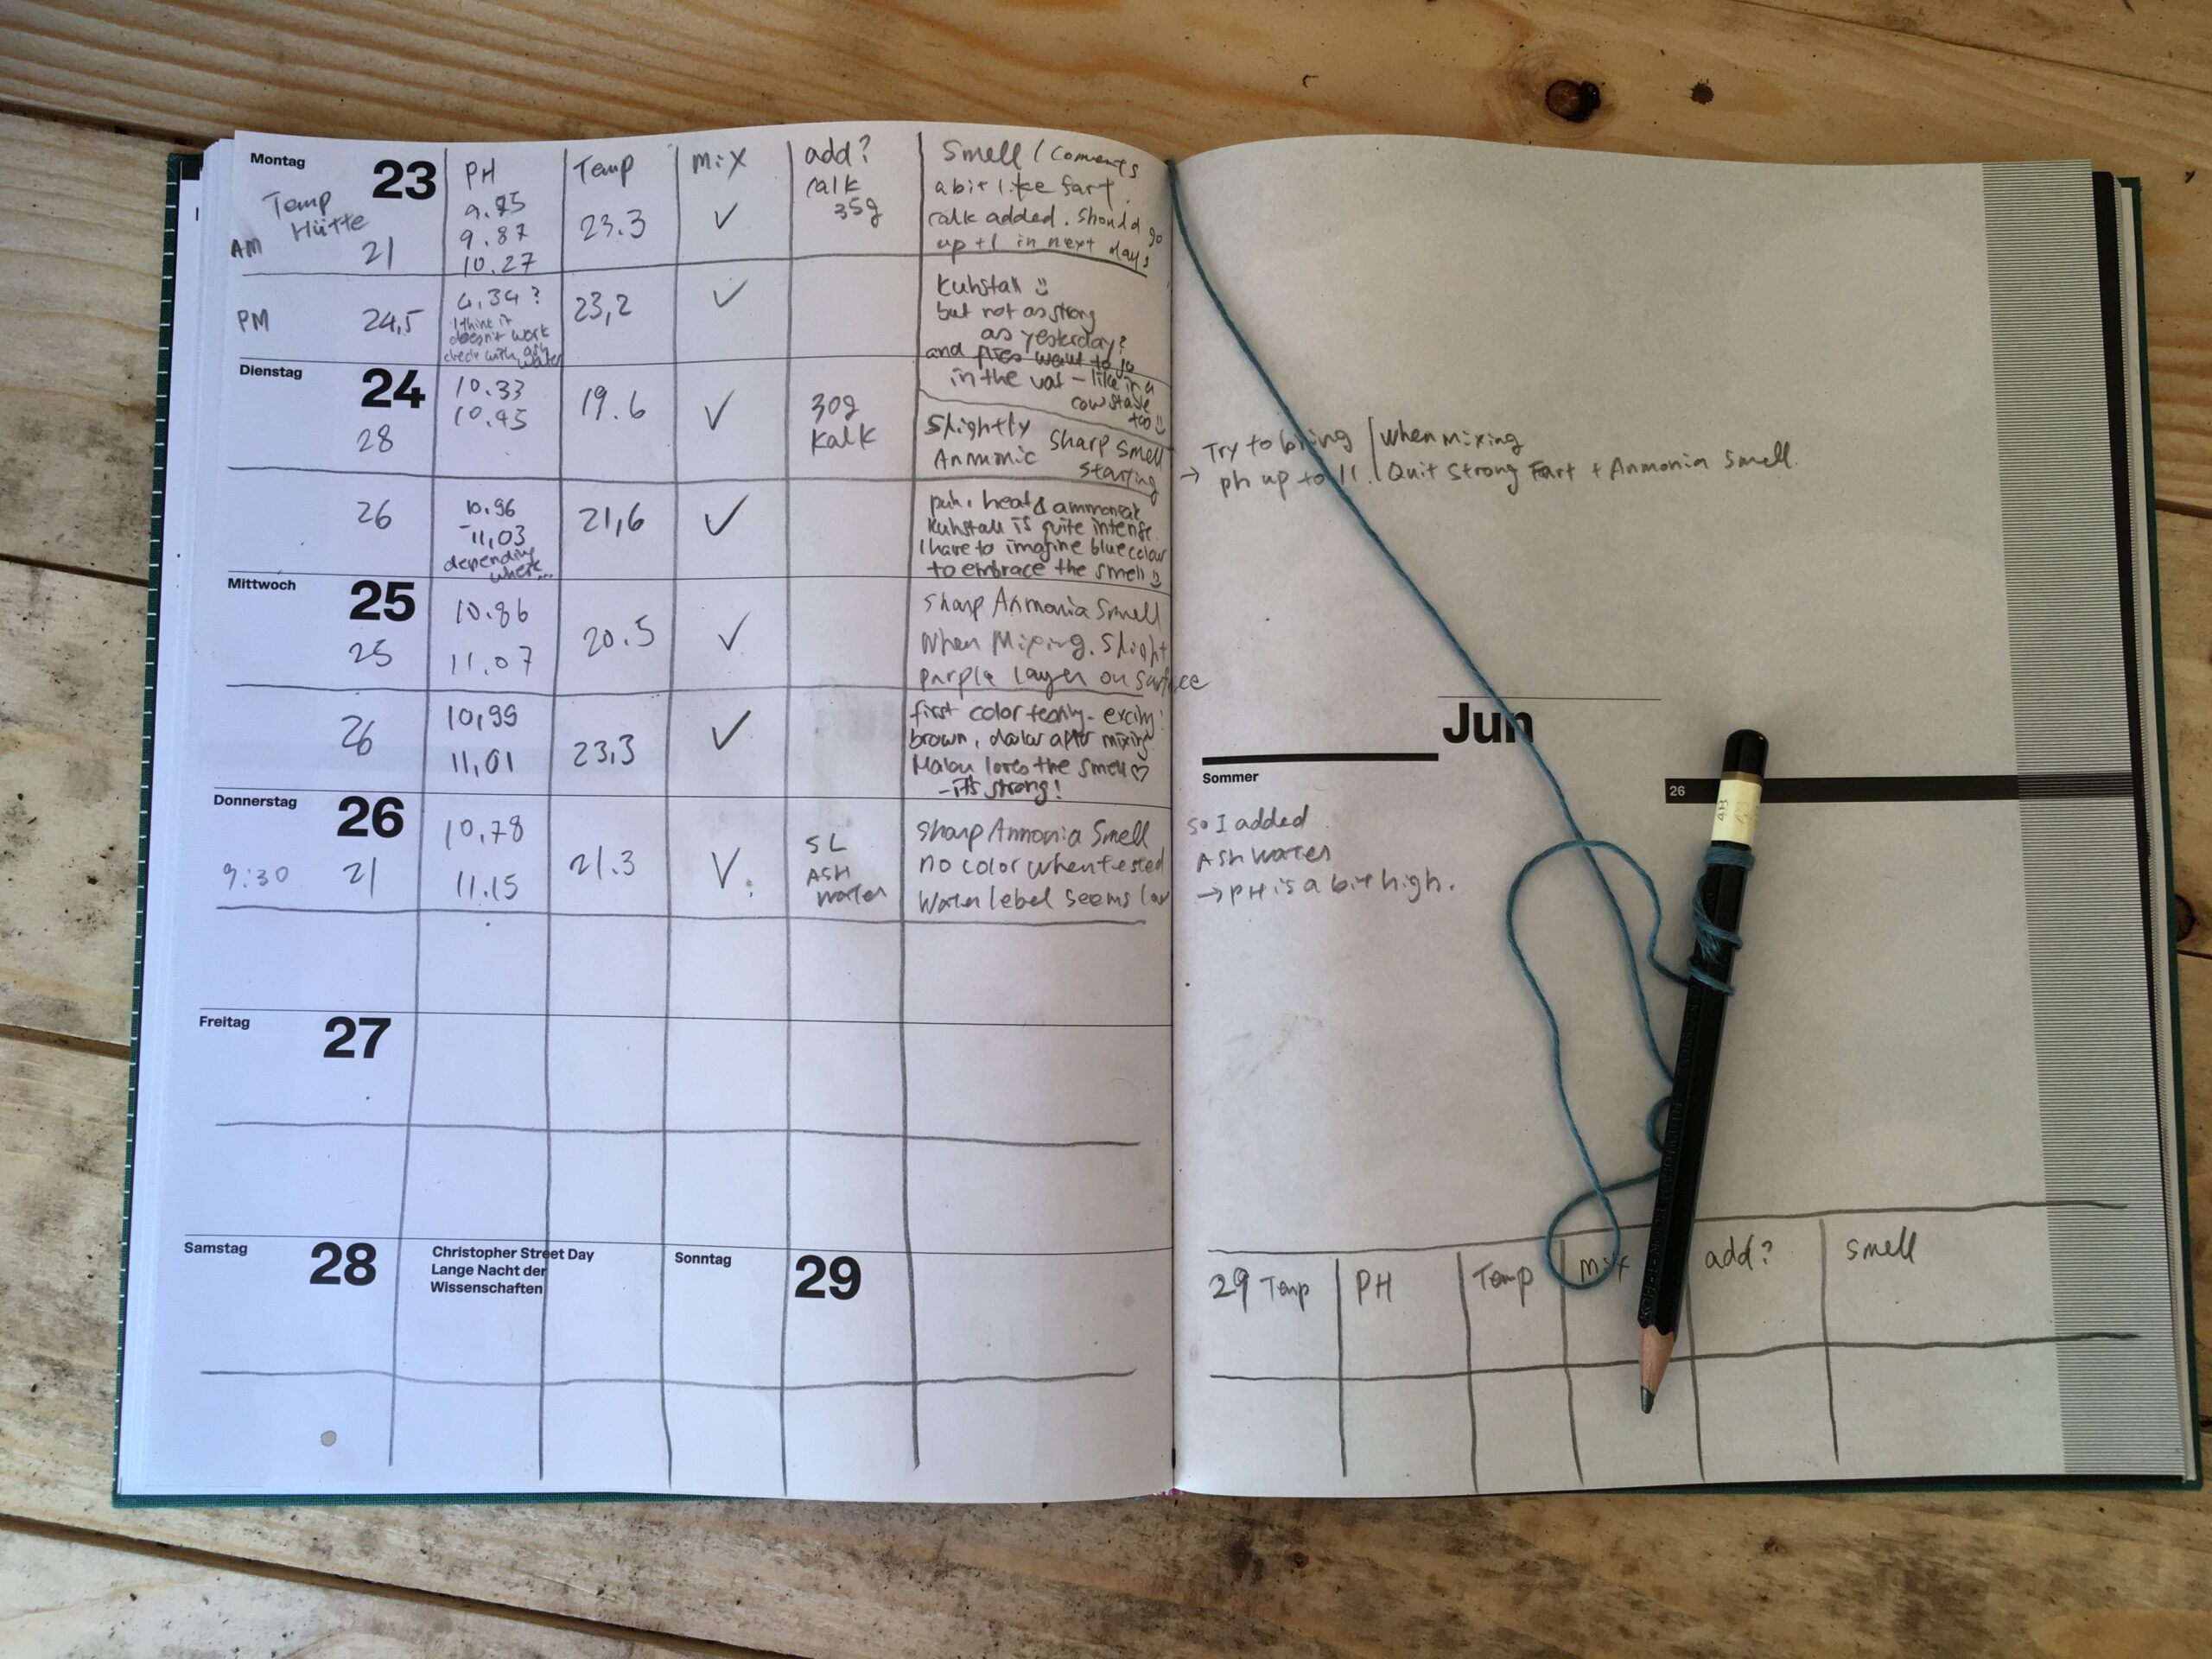 Montag 23 PH Temp Mix add? Smell / Coments
Temp Hütte
AM 21
9.85
9.87
10.27
23.3 ✓
calk
35g
a bit like fart.
calk added. Should go
up +1 in next days
PM 24,5
4,34?
I think it
doesn't work
check with ash
water
23,2 ✓
Kuhstall
but not as strong
as yesterday?
and flies want to go
in the vat – like in a
cow stable
too
Dienstag 24
28
10.33
10.45
19.6 ✓
30g
Kalk
Slightly
Anmonic Sharp Smell
starting
26
10,96
-11,03
depending
where...
21,6 ✓
puh, heat & ammoniak
Kuhstall is quite intense.
I have to imagine blue colour
to embrace the smell
Mittwoch 25
25
10.86
11.07
20.5 ✓
Sharp Anmonia Smell
When Mixing. Slight
purple layer on surface
26
10,99
11,01
23,3 ✓
first color
brown, darker after mixing
loves the smell ♡
– it's strong!
Donnerstag 26
9:30 21
10,78
11.15
21.3 ✓
5L
ASH
water
Sharp Anmonia Smell
no color when tested
Water lebel seems low
Freitag 27
Samstag 28
Christopher Street Day
Lange Nacht der
Wissenschaften
Sonntag 29
Try to bring
→ ph up to 11.
When Mixing
Quit Strong Fart + Anmonia Smell.
Jun
Sommer
26
So I added
ASH water
→ PH is a bit high.
29 Temp PH Temp mix add? Smell
4B